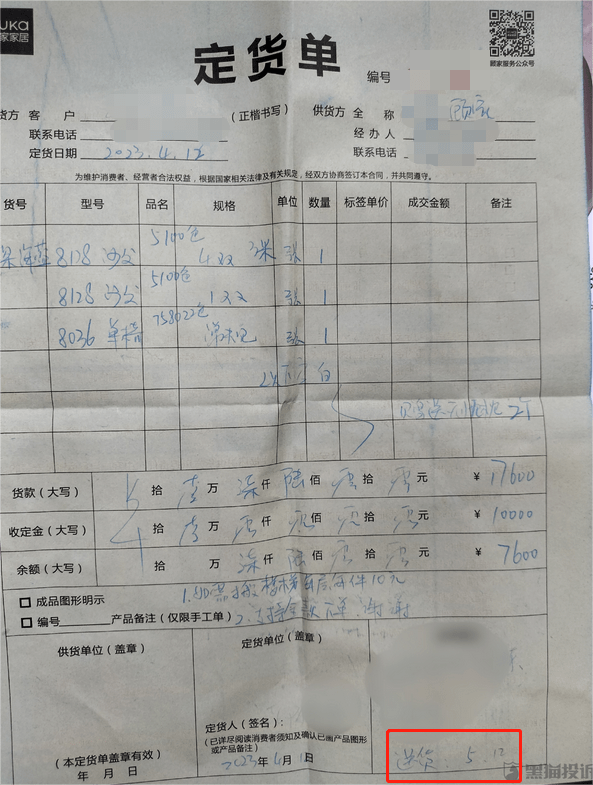 UKA
家家居
顾家服务公众号
定货单
编号
货方 客 户
(正楷书写)
供货方 全 称 顾家
联系电话
经 办 人
定货日期 2023.4.12
联系电话
为维护消费者、经营者合法权益，根据国家相关法律及有关规定，经双方协商签订本合同，并共同遵守。
货号 型号 品名 规格 单位 数量 标签单价 成交金额 备注
8128 沙发 5100色 4双 3米 张 1
8128 沙发 5100色 1双 张 1
8036 单椅 758022色 张 1
以下空白
2个
货款（大写） 拾 壹 万 柒 仟 陆 佰 零 拾 零 元 ￥ 17600
收定金（大写） 拾 壹 万 零 仟 零 佰 零 拾 零 元 ￥ 10000
余额（大写） 拾 万 柒 仟 陆 佰 零 拾 零 元 ￥ 7600
1.如需搬楼梯每层每件10元
成品图形明示
2.支持全款下单 谢谢
编号 产品备注（仅限手工单）
供货单位（盖章）
定货单位（盖章）
定货人（签名）：
(已详尽阅读消费者须知及确认已画产品图形
或产品备注)
（本定货单盖章有效）
年 月 日
2023年4月1日
送货：5.12
黑猫投诉